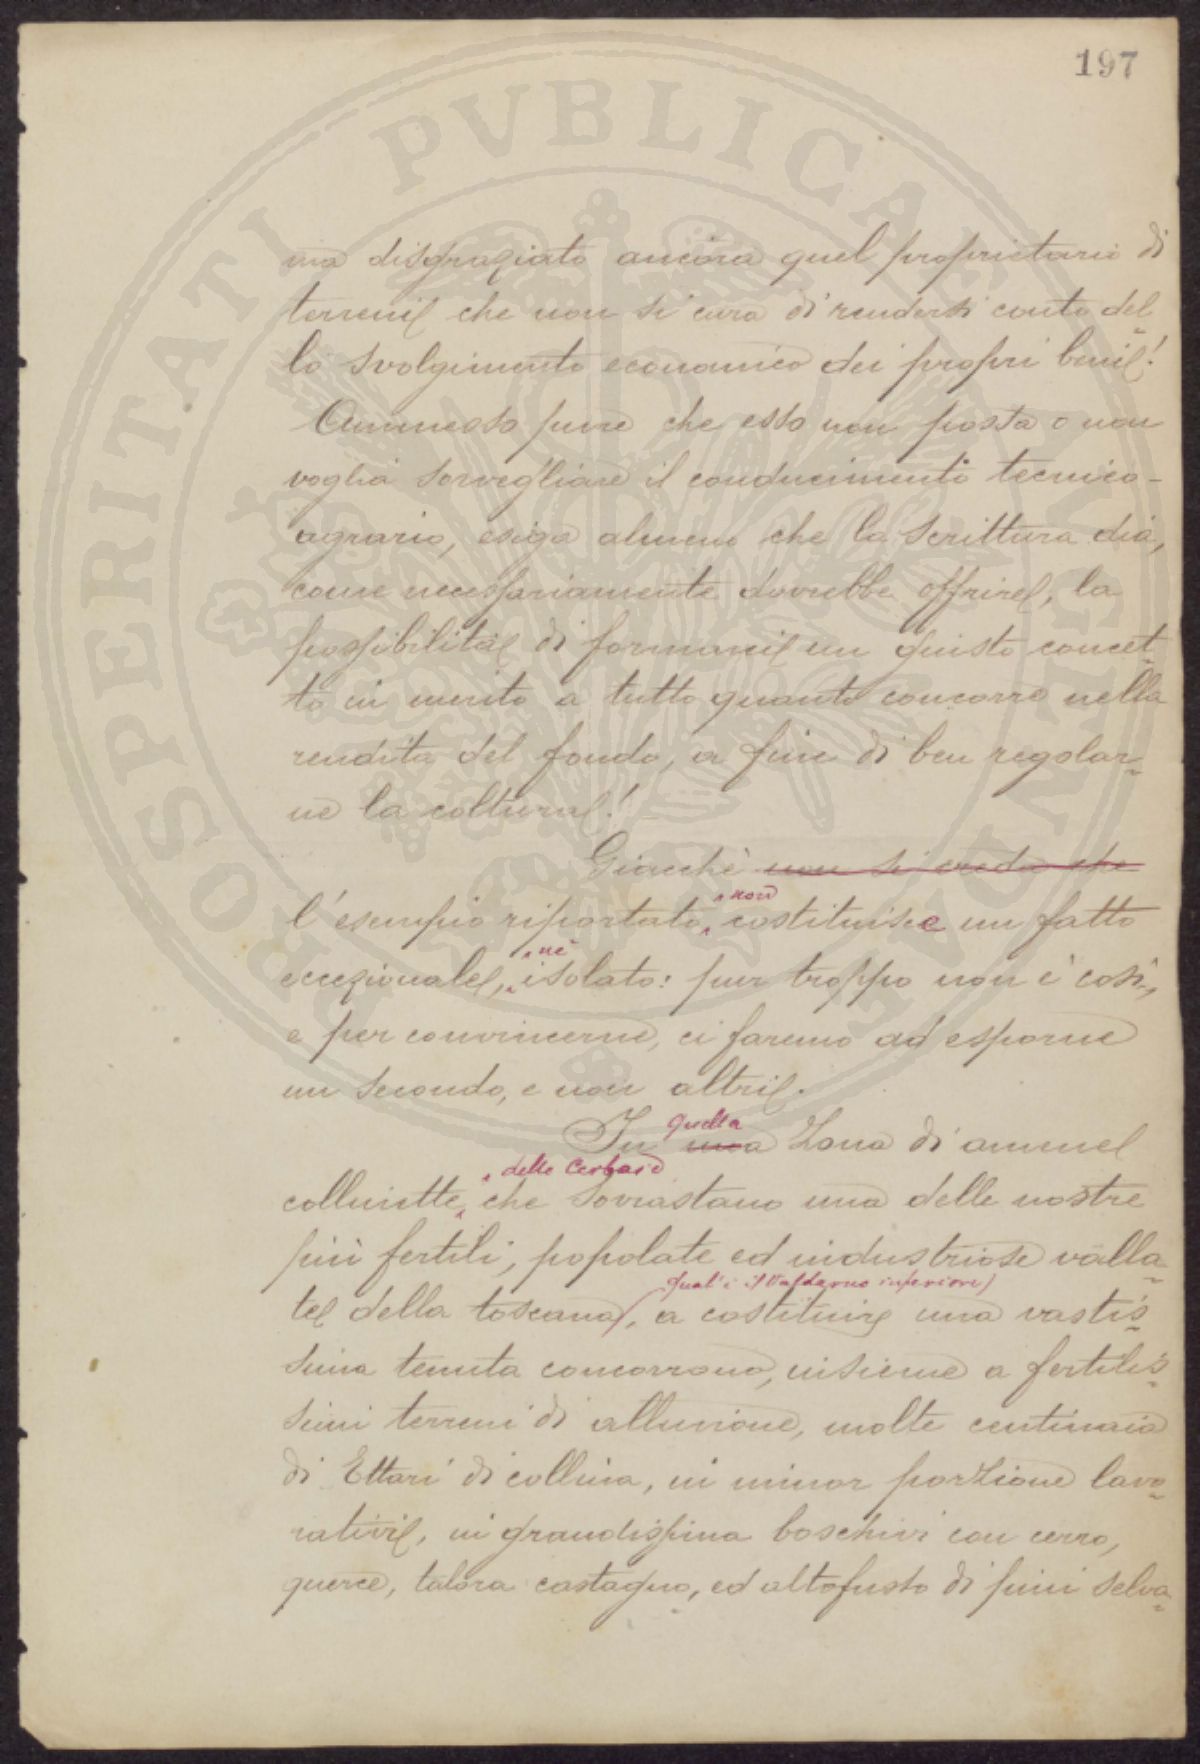 197
PROSPERITATI PVBLICAE AVGENDAE
ma disgraziato ancora quel proprietario di
terreni che non si cura di rendersi conto del
lo svolgimento economico dei propri beni!
Ammesso pure che esso non possa o non
voglia sorvegliare il conducimento tecnico-
agrario, esiga almeno che la scrittura dia,
come necessariamente dovrebbe offrire, la
possibilità di formarsi un giusto concet-
to in merito a tutto quanto concorre nella
rendita del fondo, a fine di ben regolar-
ne la coltura!
Giacchè non si creda che
non
l'esempio riportato, costituisce un fatto
nè
eccezionale, isolato: pur troppo non è così,
e per convincerne, ci faremo ad esporne
un secondo, e non altri.
quella
In una Zona di amene
delle Cerbaie
collinette, che sovrastano una delle nostre
più fertili, popolate ed industriose valla-
qual'è il Valdarno inferiore)
te della toscana, a costituire una vastis-
sima tenuta concorrono, insieme a fertilis-
simi terreni di alluvione, molte centinaia
di Ettari di collina, in minor porzione lavo-
rativi, in grandissima boschivi con cerro,
querce, talora castagno, ed altofusto di pini selva-